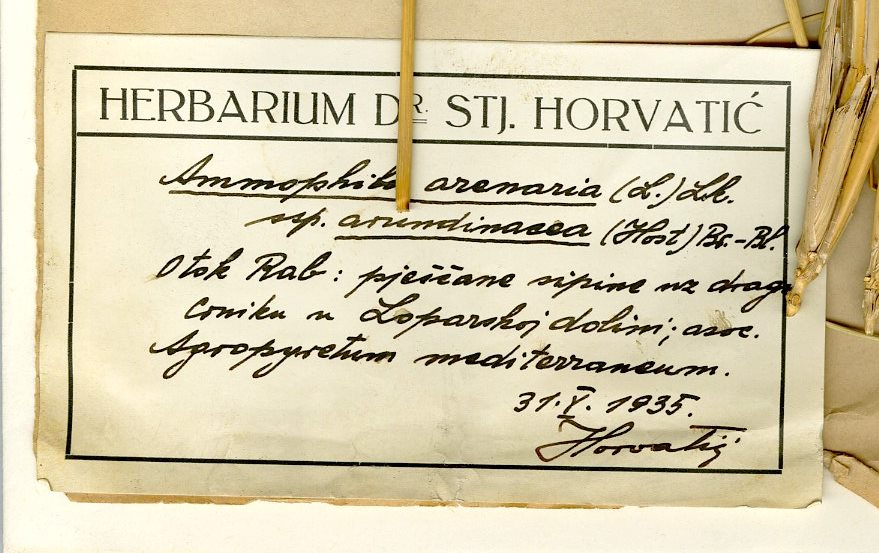 HERBARIUM DR. STJ. HORVATIĆ
Ammophila arenaria (L.) Lk.
ssp. arundinacea (Host) Br.-Bl.
Otok Rab: pješčane sipine uz
u Loparskoj dolini; asoc.
Agropyretum mediterraneum.
31.X. 1935.
Horvatić